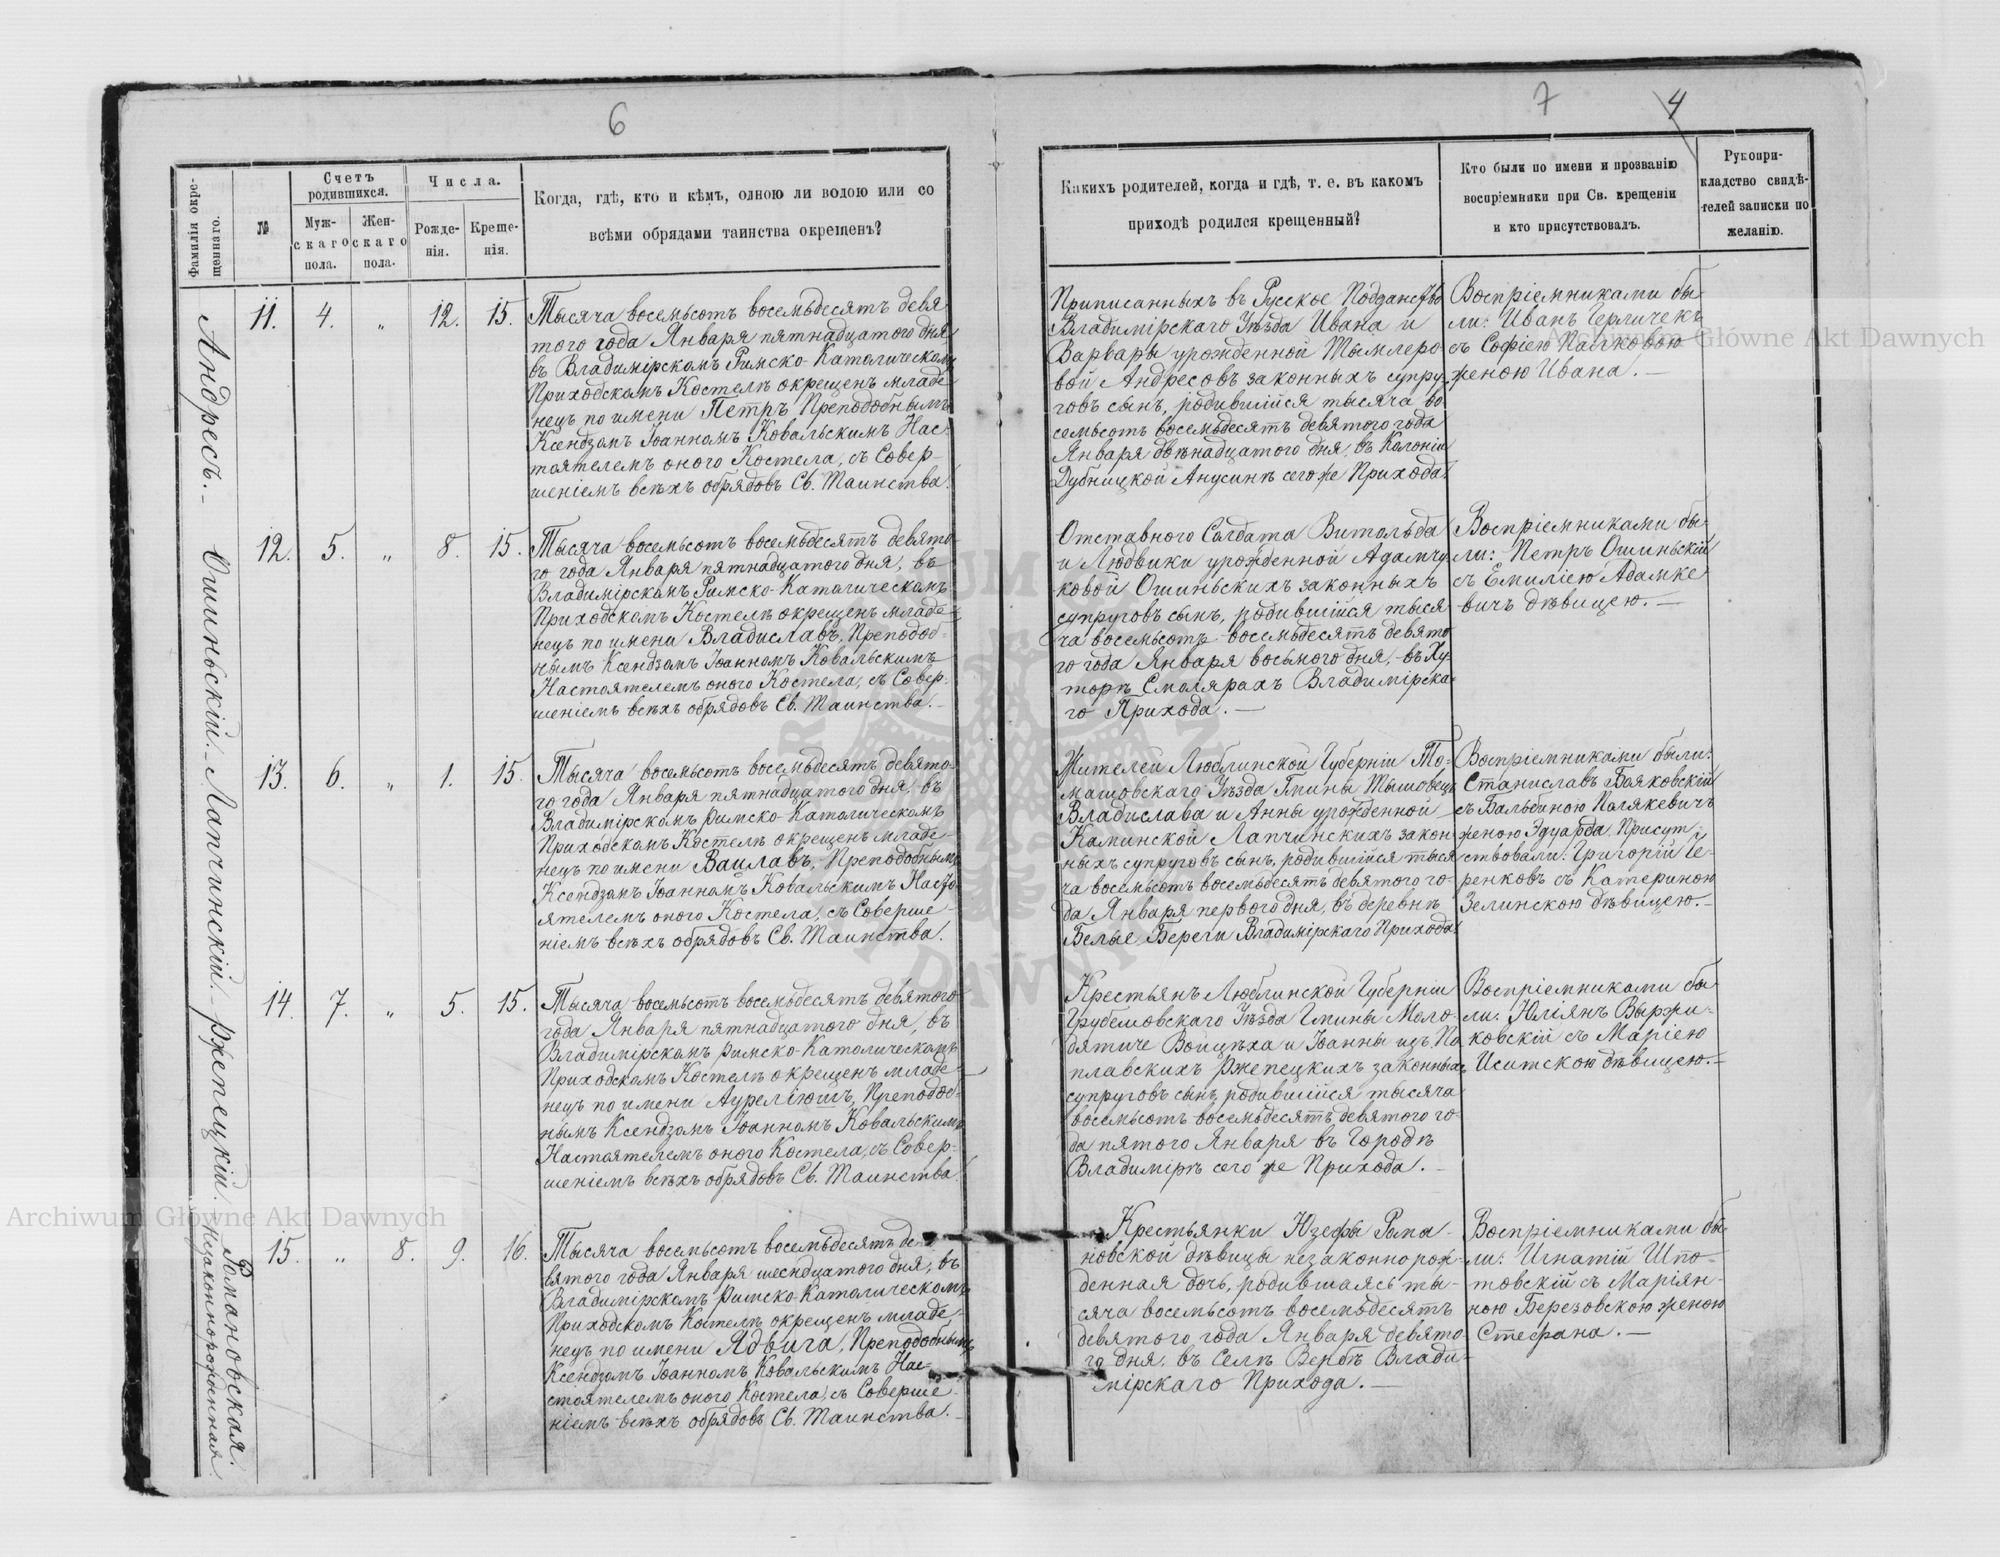 6
Фамилія окре-
щеннаго.
№
Счетъ
родившихся.
Муж-
скаго
пола.
Жен-
скаго
пола.
Числа.
Рожде-
нія.
Креще-
нія.
Когда, гдѣ, кто и кѣмъ, одною ли водою или со
всѣми обрядами таинства окрещенъ?
Андресъ.
11. 4. „ 12. 15.
Тысяча восемьсотъ восемьдесятъ девя-
того года Января пятнадцатого дня
въ Владимірскомъ Римско-Католическомъ
Приходскомъ Костелѣ окрещенъ младе-
нецъ по имени Петръ Преподобнымъ
Ксендзомъ Іоанномъ Ковальскимъ Нас-
тоятелемъ оного Костела, съ Совер-
шеніемъ всѣхъ обрядовъ Св. Таинства.
Ошиньскій.
12. 5. „ 8. 15.
Тысяча восемьсотъ восемьдесятъ девято-
го года Января пятнадцатого дня, въ
Владимірскомъ Римско-Католическомъ
Приходскомъ Костелѣ окрещенъ младе-
нецъ по имени Владиславъ, Преподоб-
нымъ Ксендзомъ Іоанномъ Ковальскимъ
Настоятелемъ оного Костела, съ Совер-
шеніемъ всѣхъ обрядовъ Св. Таинства.
Лапчинскій.
13. 6. „ 1. 15.
Тысяча восемьсотъ восемьдесятъ девято-
го года Января пятнадцатого дня, въ
Владимірскомъ римско-Католическомъ
Приходскомъ Костелѣ окрещенъ младе-
нецъ по имени Вацлавъ, Преподобнымъ
Ксендзомъ Іоанномъ Ковальскимъ Насто-
ятелемъ оного Костела, съ Соверше-
ніемъ всѣхъ обрядовъ Св. Таинства.
Ржепецкій.
14. 7. „ 5. 15.
Тысяча восемьсотъ восемьдесятъ девятого
года Января пятнадцатого дня, въ
Владимірскомъ римско-Католическомъ
Приходскомъ Костелѣ окрещенъ младе-
нецъ по имени Ауреліюшъ, Преподоб-
нымъ Ксендзомъ Іоанномъ Ковальскимъ
Настоятелемъ оного Костела, съ Совер-
шеніемъ всѣхъ обрядовъ Св. Таинства.
Романовская.
Незаконнорожденная
15. „ 8. 9. 16.
Тысяча восемьсотъ восемьдесятъ де-
вятого года Января шесндцатого дня, въ
Владимірскомъ римско-Католическомъ
Приходскомъ Костелѣ окрещенъ младе-
нецъ по имени Ядвига, Преподобнымъ
Ксендзомъ Іоанномъ Ковальскимъ Нас-
стоятелемъ оного Костела, съ Соверше-
ніемъ всѣхъ обрядовъ Св. Таинства.
7 4
Какихъ родителей, когда и гдѣ, т. е. въ какомъ
приходѣ родился крещенный?
Кто были по имени и прозванію
воспріемники при Св. крещеніи
и кто присутствовалъ.
Рукопри-
кладство свидѣ-
телей записки по
желанію.
Приписанныхъ въ Русское Подданство
Владимірскаго Уѣзда Ивана и
Варвары урожденной Тымлеро-
вой Андресовъ законныхъ супру-
говъ сынъ, родившійся тысяча во-
семьсотъ восемьдесятъ девятого года
Января двѣнадцатого дня, въ Колоніи
Дубницкой Анусинѣ сего же Прихода.
Воспріемниками бы-
ли: Иванъ Герличекъ
съ Софіею Палковою
женою Ивана.
Отставного Солдата Витольда
и Людвики урожденной Адамчу-
ковой Ошиньскихъ законныхъ
супруговъ сынъ, родившійся тыся-
ча восемьсотъ восемьдесятъ девято-
го года Января восьмого дня, въ Ху-
торѣ Смолярахъ Владимірска-
го Прихода.
Воспріемниками бы-
ли: Петръ Ошиньскій
съ Емиліею Адамке-
вичъ дѣвицею.
Жителей Люблинской Губерніи То-
машовскаго Уѣзда Гмины Тышовецъ
Владислава и Анны урожденной
Каминской Лапчинскихъ закон-
ныхъ супруговъ сынъ, родившійся тыся-
ча восемьсотъ восемьдесятъ девятого го-
да Января первого дня, въ деревнѣ
Белые Береги Владимірскаго Прихода.
Воспріемниками были:
Станиславъ Бояковскій
съ Бальбиною Полякевичъ
женою Эдуарда, Присут-
ствовали: Григорій Че-
ренковъ съ Катериною
Зелинскою дѣвицею.
Крестьянъ Люблинской Губерніи
Грубешовскаго Уѣзда Гмины Моло-
дятиче Войцѣха и Іоанны изъ По-
плавскихъ Ржепецкихъ законныхъ
супруговъ сынъ, родившійся тысяча
восемьсотъ восемьдесятъ девятого го-
да пятого Января въ Городѣ
Владимірѣ сего же Прихода.
Воспріемниками бы-
ли: Юліянъ Выржи-
ковскій съ Маріею
Иситскою дѣвицею.
Крестьянки Юзефы Рома-
новской дѣвицы незаконнорож-
денная дочь, родившаясь ты-
сяча восемьсотъ восемьдесятъ
девятого года Января девято-
го дня, въ Селѣ Вербѣ Влади-
мірскаго Прихода.
Воспріемниками бы-
ли: Игнатій Шпо-
товскій съ Маріян-
ною Березовскою женою
Стефана.
Archiwum Główne Akt Dawnych
Archiwum Główne Akt Dawnych